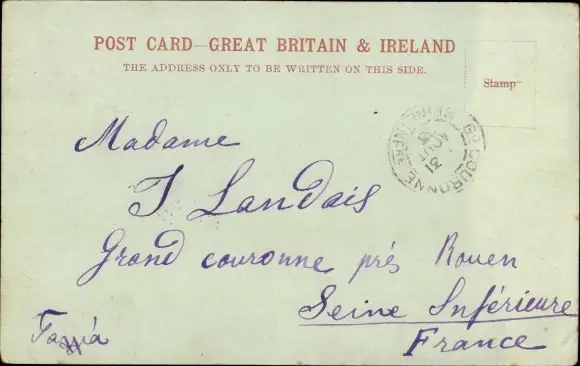 POST CARD—GREAT BRITAIN & IRELAND
THE ADDRESS ONLY TO BE WRITTEN ON THIS SIDE.
Stamp
GD COURONNE
31
AOUT
Madame
J Landais
Grand couronne prés Rouen
Seine Inférieure
France